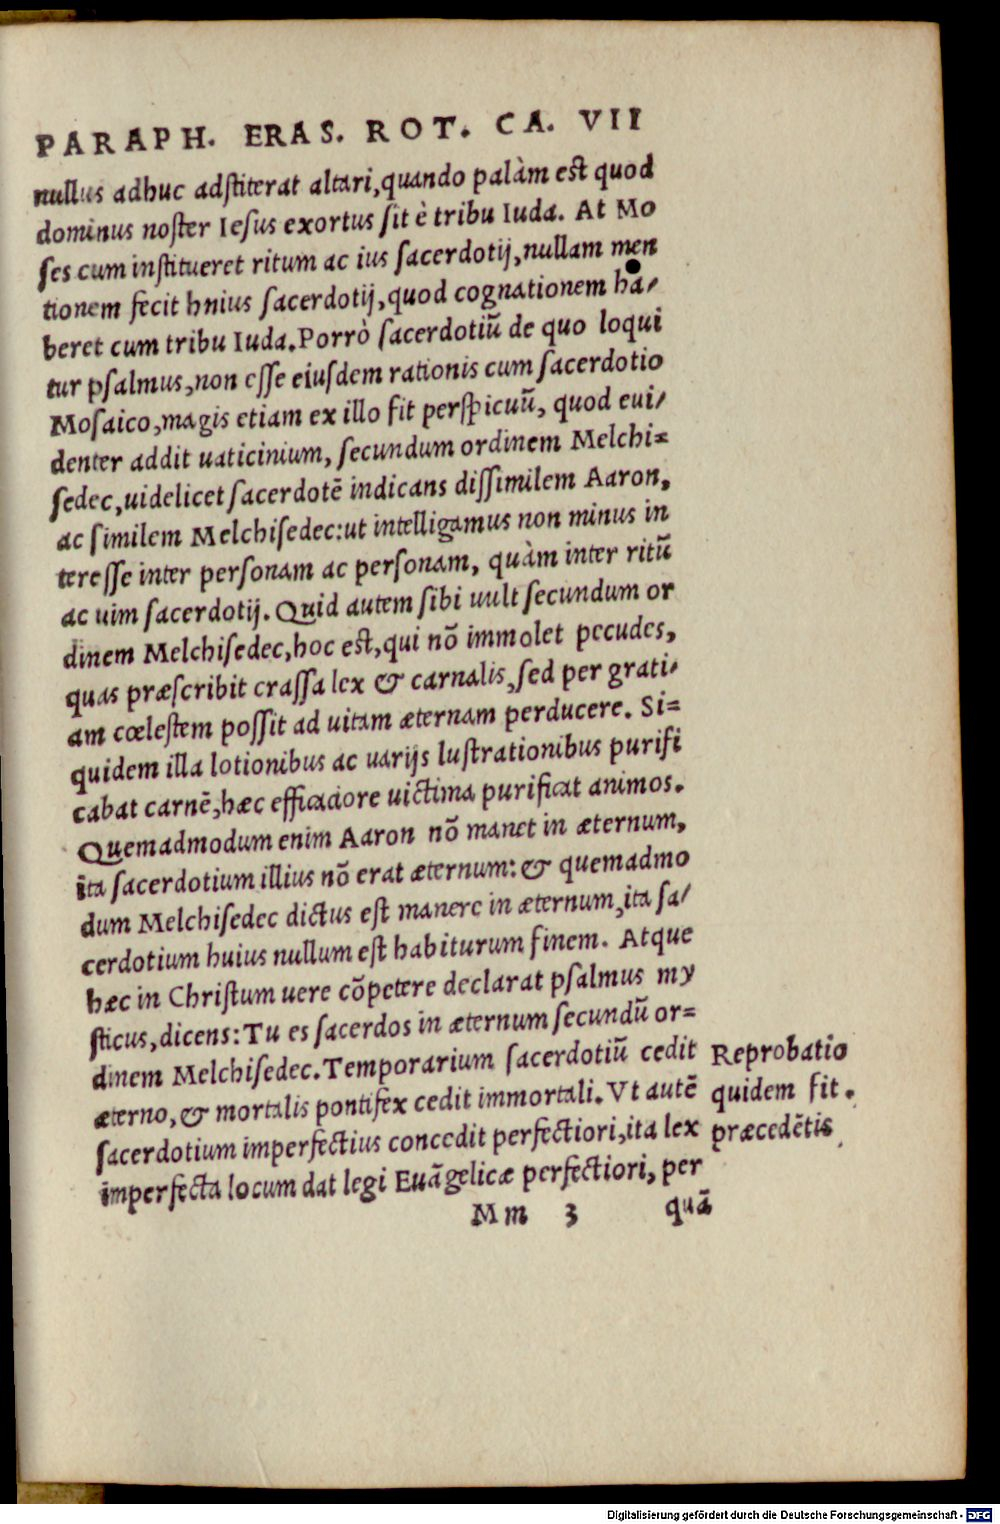 PARAPH. ERAS. ROT. CA. VII
nullus adhuc adſtiterat altari,quando palàm est quod
dominus noſter Ieſus exortus ſit è tribu Iuda. At Mo
ſes cum inſtitueret ritum ac ius ſacerdotij,nullam men
tionem fecit hnius ſacerdotij,quod cognationem ha/
beret cum tribu Iuda.Porrò ſacerdotiũ de quo loqui
tur pſalmus,non eſſe eiuſdem rationis cum ſacerdotio
Moſaico,magis etiam ex illo fit perſpicuũ, quod eui/
denter addit uaticinium, ſecundum ordinem Melchi=
ſedec,uidelicet ſacerdotẽ indicans diſſimilem Aaron,
ac ſimilem Melchiſedec:ut intelligamus non minus in
tereſſe inter perſonam ac perſonam, quàm inter ritũ
ac uim ſacerdotij. Quid autem ſibi uult ſecundum or
dinem Melchiſedec,hoc eſt,qui nõ immolet pecudes,
quas præſcribit craſſa lex & carnalis,ſed per grati/
am cœleſtem poſſit ad uitam æternam perducere. Si=
quidem illa lotionibus ac uarijs luſtrationibus purifi
cabat carnẽ,hæc efficaciore uictima purificat animos.
Quemadmodum enim Aaron nõ manet in æternum,
ita ſacerdotium illius nõ erat æternum: & quemadmo
dum Melchiſedec dictus eſt manere in æternum,ita ſa/
cerdotium huius nullum eſt habiturum finem. Atque
hæc in Chriſtum uere cõpetere declarat pſalmus my
ſticus,dicens:Tu es ſacerdos in æternum ſecundũ or=
dinem Melchiſedec.Temporarium ſacerdotiũ cedit
æterno,& mortalis pontifex cedit immortali.Vt autẽ
ſacerdotium imperfectius concedit perfectiori,ita lex
imperfecta locum dat legi Euãgelicæ perfectiori, per
Reprobatio
quidem fit.
præcedẽtis
Mm 3 quã
Digitalisierung gefördert durch die Deutsche Forschungsgemeinschaft - DFG